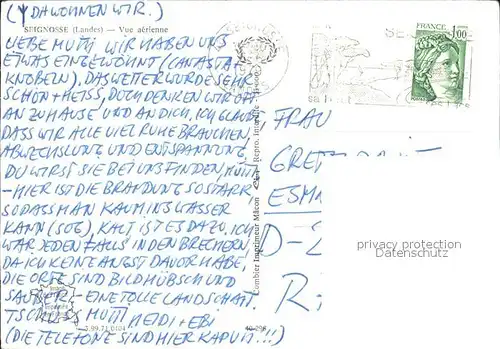 (↑ DA WOHNEN WIR.)
SEIGNOSSE (Landes) — Vue aérienne
LIEBE MUTTI, WIR HABEN UNS
ETWAS EINGEWÖHNT (CANASTA+
KNOBELN), DAS WETTER WURDE SEHR
SCHÖN + HEISS, DOCH DENKEN WIR OFT
AN ZUHAUSE UND AN DICH, ICH GLAUBE
DASS WIR ALLE VIEL RUHE BRAUCHEN,
ABWECHSLUNG UND ENTSPANNUNG,
DU WIRST SIE BEI UNS FINDEN, MUTTI
- HIER IST DIE BRANDUNG SO STARK
SODASS MAN KAUM INS WASSER
KANN (SOG), KALT IST ES DAZU, ICH
WAR JEDENFALLS IN DEN BRECHERN,
DA ICH KEINE ANGST DAVOR HABE,
DIE ORTE SIND BILDHÜBSCH UND
SAUBER, - EINE TOLLE LANDSCHAFT.
TSCHÜSS MUTTI HEIDI + EBI
(DIE TELEFONE SIND HIER KAPUTT!!!)
3.99.71.0404
40-296
Combier Imprimeur Mâcon
Repro. Interdite
FRANCE
1,00
POSTES
FRAU
GRET
ESMA
D-2
privacy protection
Datenschutz